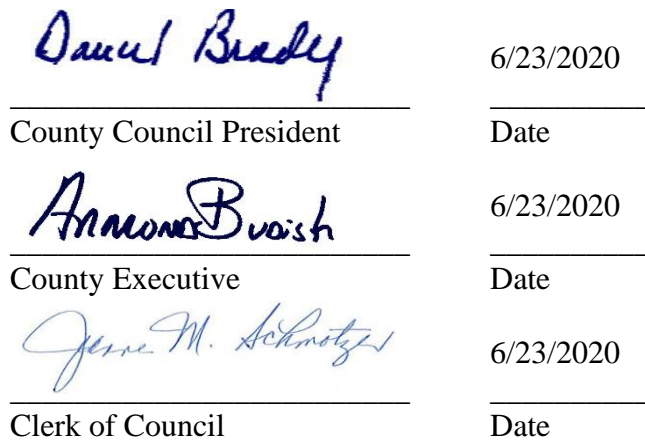 Daniel Brady 6/23/2020
County Council President Date
6/23/2020
County Executive Date
Jeanne M. Schmotzer 6/23/2020
Clerk of Council Date